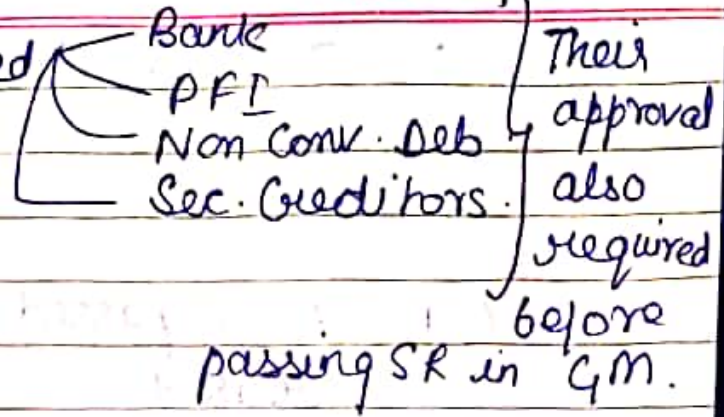 ed Bank
PFI
Non Conv. Deb
Sec. Creditors.
Their
approval
also
required
before
passing SR in GM.